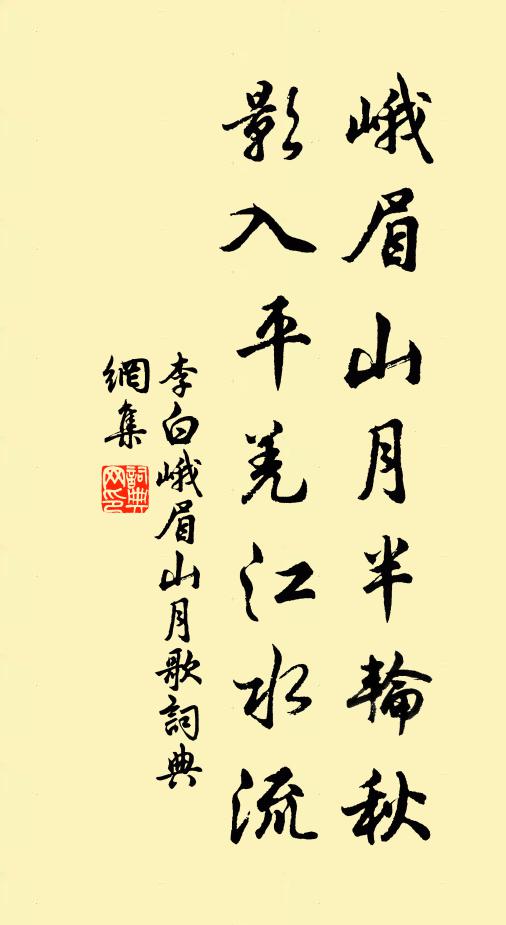 峨眉山月半輪秋
影入平羌江水流
李白峨眉山月歌詞典
網集
詞典網印